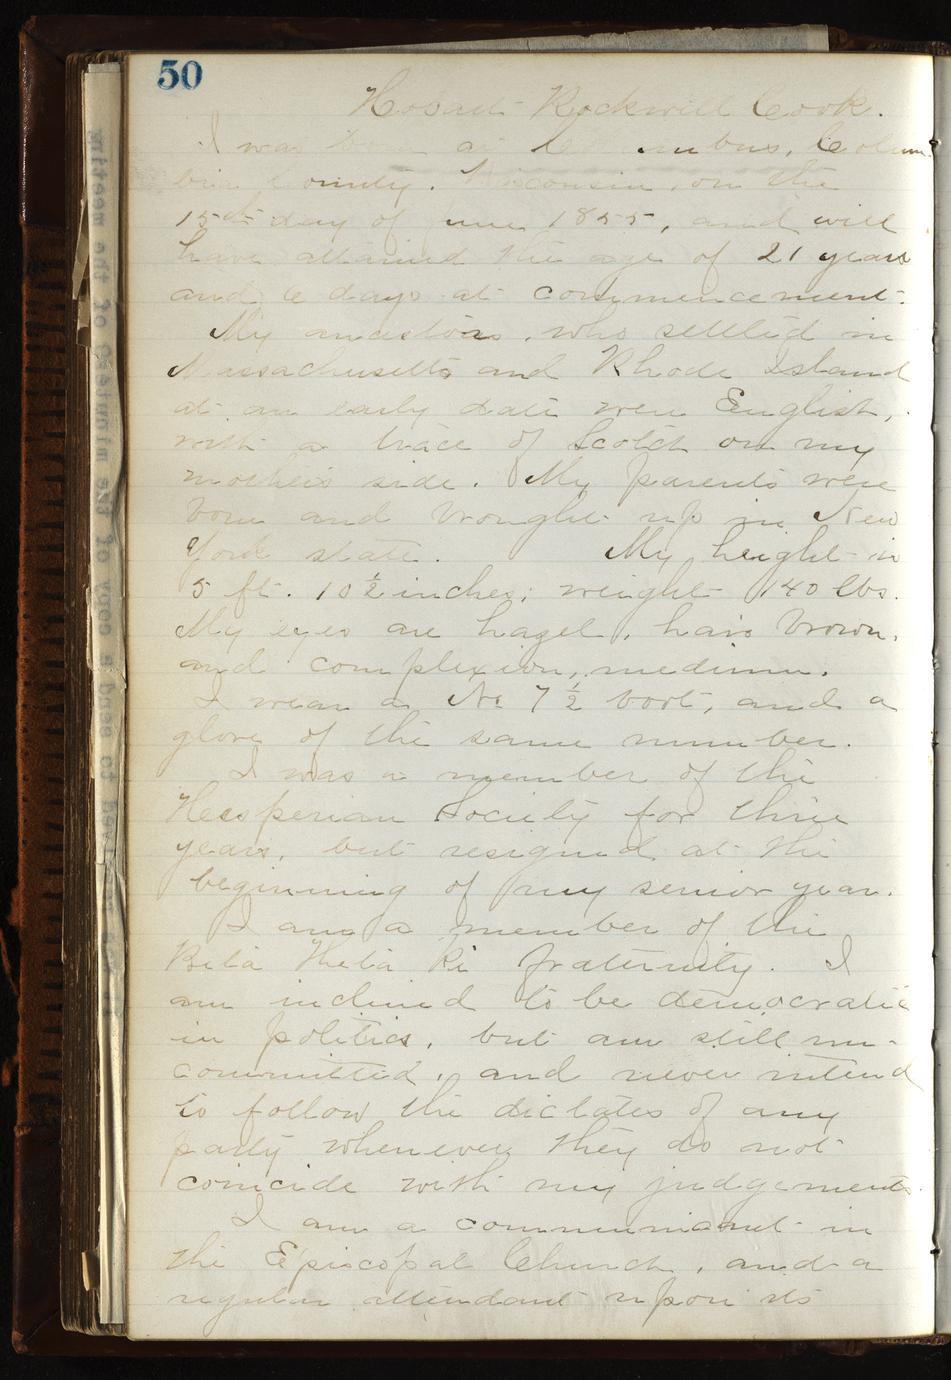 50
Hobart Rockwell Cook.
I was born at Columbus, Colum-
bia County, Wisconsin, on the
15th day of June 1855, and will
have attained the age of 21 years
and 6 days at commencement.
My ancestors, who settled in
Massachusetts and Rhode Island
at an early date were English,
with a trace of Scotch on my
mother's side. My parents were
born and brought up in New
York state. My height is
5 ft. 10 ½ inches; weight 140 lbs.
My eyes are hazel, hair brown,
and complexion, medium.
I wear a No 7 ½ boot, and a
glove of the same number.
I was a member of the
Hesperian Society for three
years, but resigned at the
beginning of my senior year.
I am a member of the
Beta Theta Pi fraternity. I
am inclined to be democratic
in politics, but am still un-
committed, and never intend
to follow the dictates of any
party whenever they do not
coincide with my judgements.
I am a communicant in
the Episcopal Church, and a
regular attendant upon its